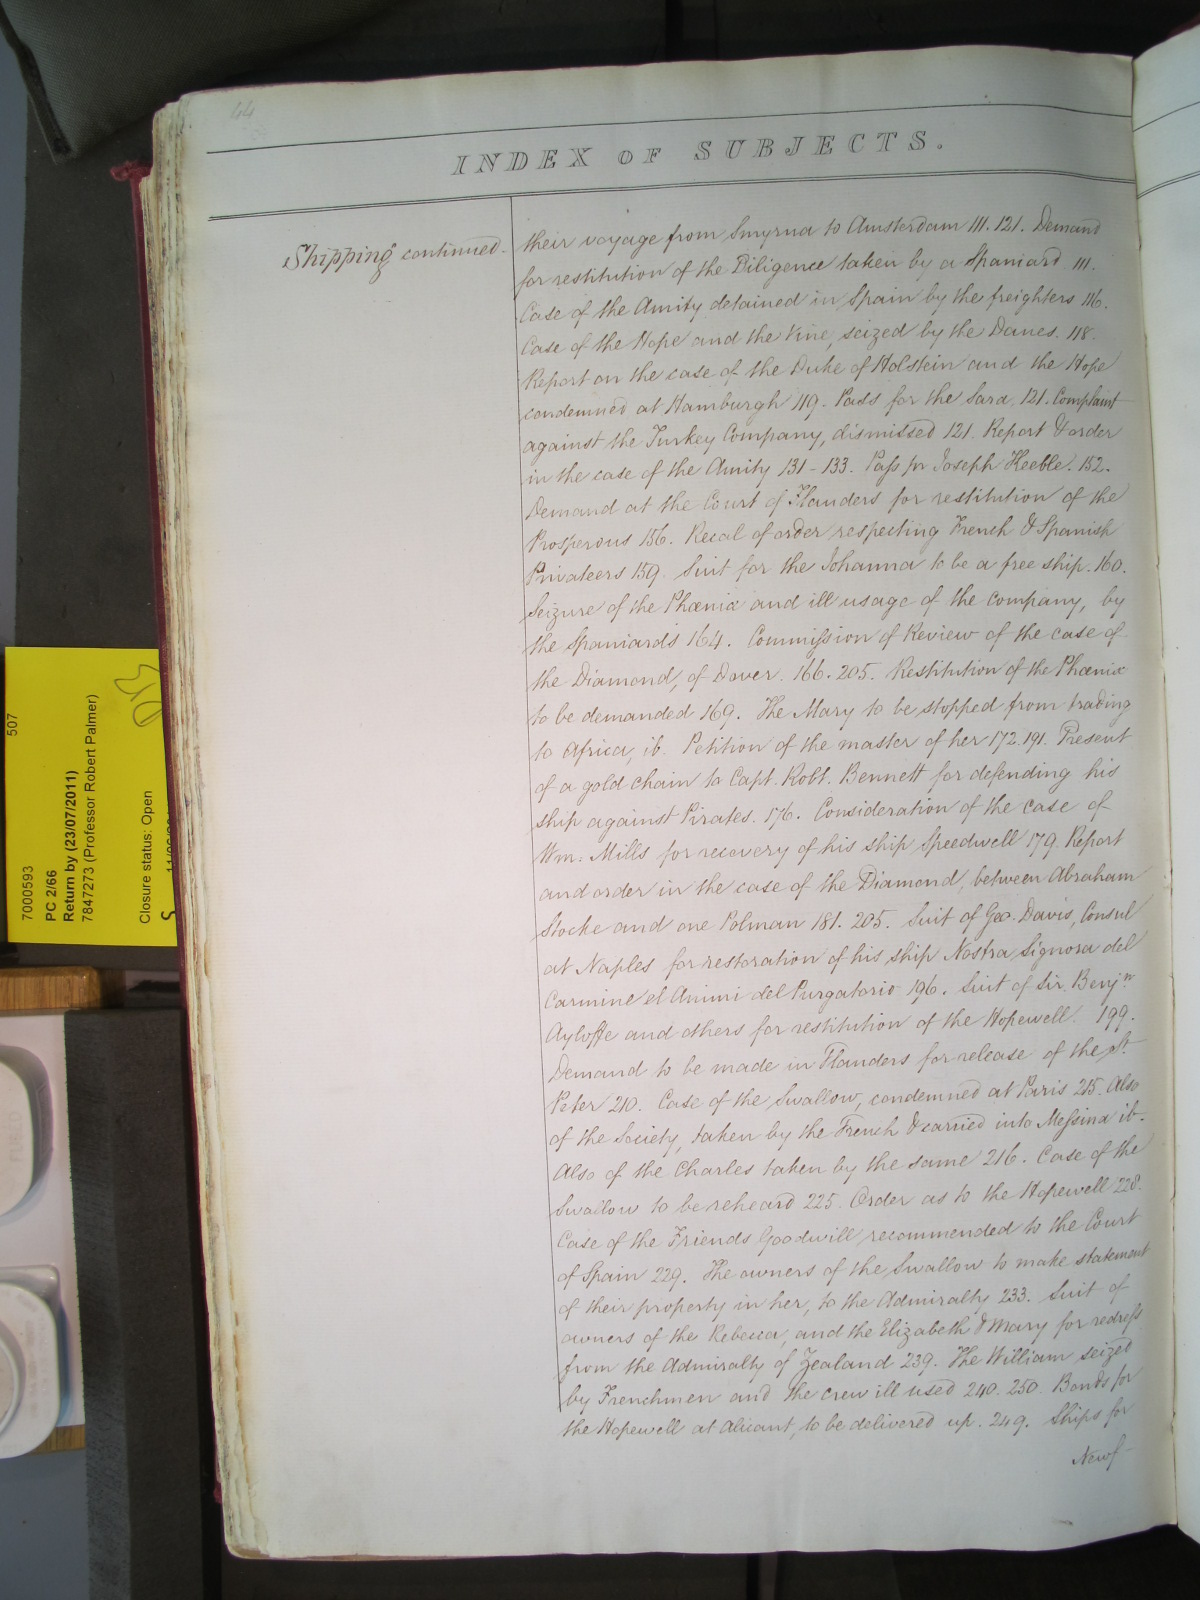 44
INDEX OF SUBJECTS.
Shipping continued.
their voyage from Smyrna to Amsterdam 111. 121. Demand
for restitution of the Diligence taken by a Spaniard 111.
Case of the Amity detained in Spain by the freighters 116.
Case of the Hope and the Vine, seized by the Danes. 118.
Report on the case of the Duke of Holstein and the Hope
condemned at Hamburgh 119. Pass for the Sara. 121. Complaint
against the Turkey Company, dismissed 121. Report & order
in the case of the Amity 131-133. Pass for Joseph Keeble. 152.
Demand at the Court of Flanders for restitution of the
Prosperous 156. Recal of order respecting French & Spanish
Privateers 159. Suit for the Johanna to be a free ship. 160.
Seizure of the Phœnix and ill usage of the company, by
the Spaniards 164. Commission of Review of the case of
the Diamond, of Dover. 166. 205. Restitution of the Phœnix
to be demanded 169. The Mary to be stopped from trading
to Africa, ib. Petition of the master of her 172. 191. Present
of a gold chain to Capt. Robt. Bennett for defending his
ship against Pirates. 176. Consideration of the case of
Wm. Mills for recovery of his ship Speedwell 179. Report
and order in the case of the Diamond, between Abraham
Stocke and one Polman 181. 205. Suit of Geo. Davis, Consul
at Naples for restoration of his ship Nostra Signora del
Carmine el Animi del Purgatorio 196. Suit of Sir Benjn
Ayloffe and others for restitution of the Hopewell. 199.
Demand to be made in Flanders for release of the St.
Peter 210. Case of the Swallow, condemned at Paris 215. Also
of the Society, taken by the French & carried into Messina ib.
Also of the Charles taken by the same 216. Case of the
Swallow to be reheard 225. Order as to the Hopewell 228.
Case of the Friends Goodwill recommended to the Court
of Spain 229. The owners of the Swallow to make statement
of their property in her, to the Admiralty 233. Suit of
owners of the Rebecca, and the Elizabeth & Mary for redress
from the Admiralty of Zealand 239. The William seized
by Frenchmen and the crew ill used 240. 250. Bonds for
the Hopewell at Alicant, to be delivered up. 249. Ships for
Newf-
507
7000593
PC 2/66
Return by (23/07/2011)
7847273 (Professor Robert Palmer)
Closure status: Open